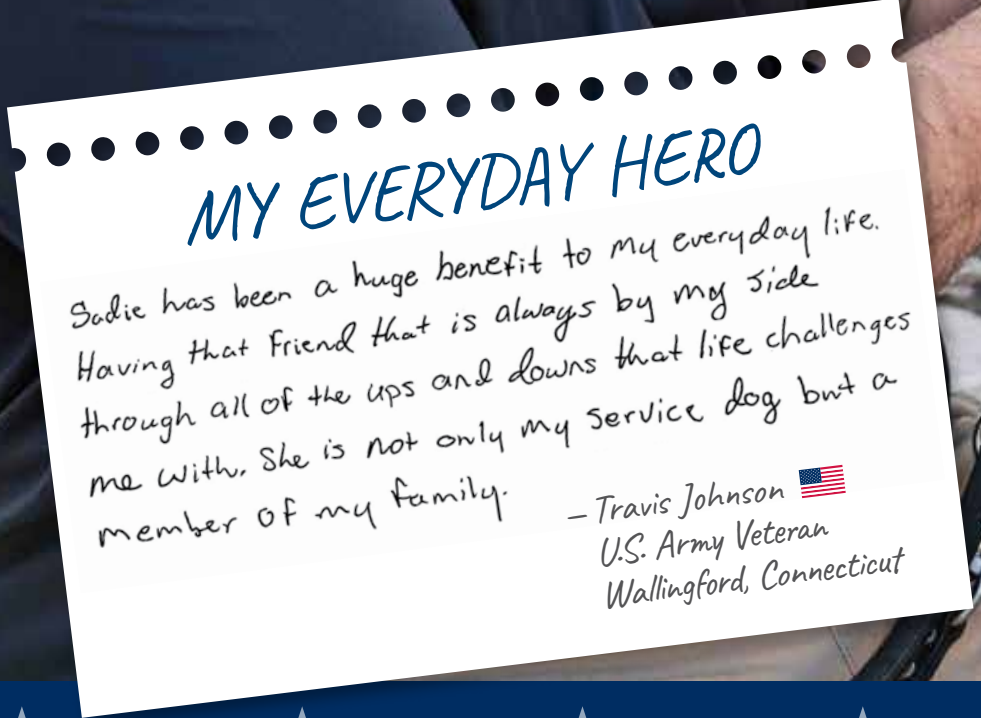 MY EVERYDAY HERO
Sadie has been a huge benefit to my everyday life.
Having that friend that is always by my side
through all of the ups and downs that life challenges
me with. She is not only my service dog but a
member of my family.
– Travis Johnson
U.S. Army Veteran
Wallingford, Connecticut